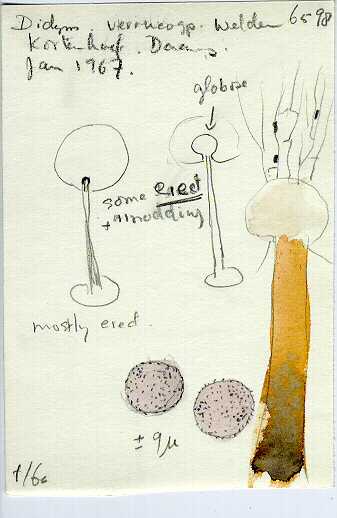 Didym verrucosp. Welden 6598
Kortenhoef.
Jan 1967.
globose
some erect
± nodding
mostly erect.
± 9µ